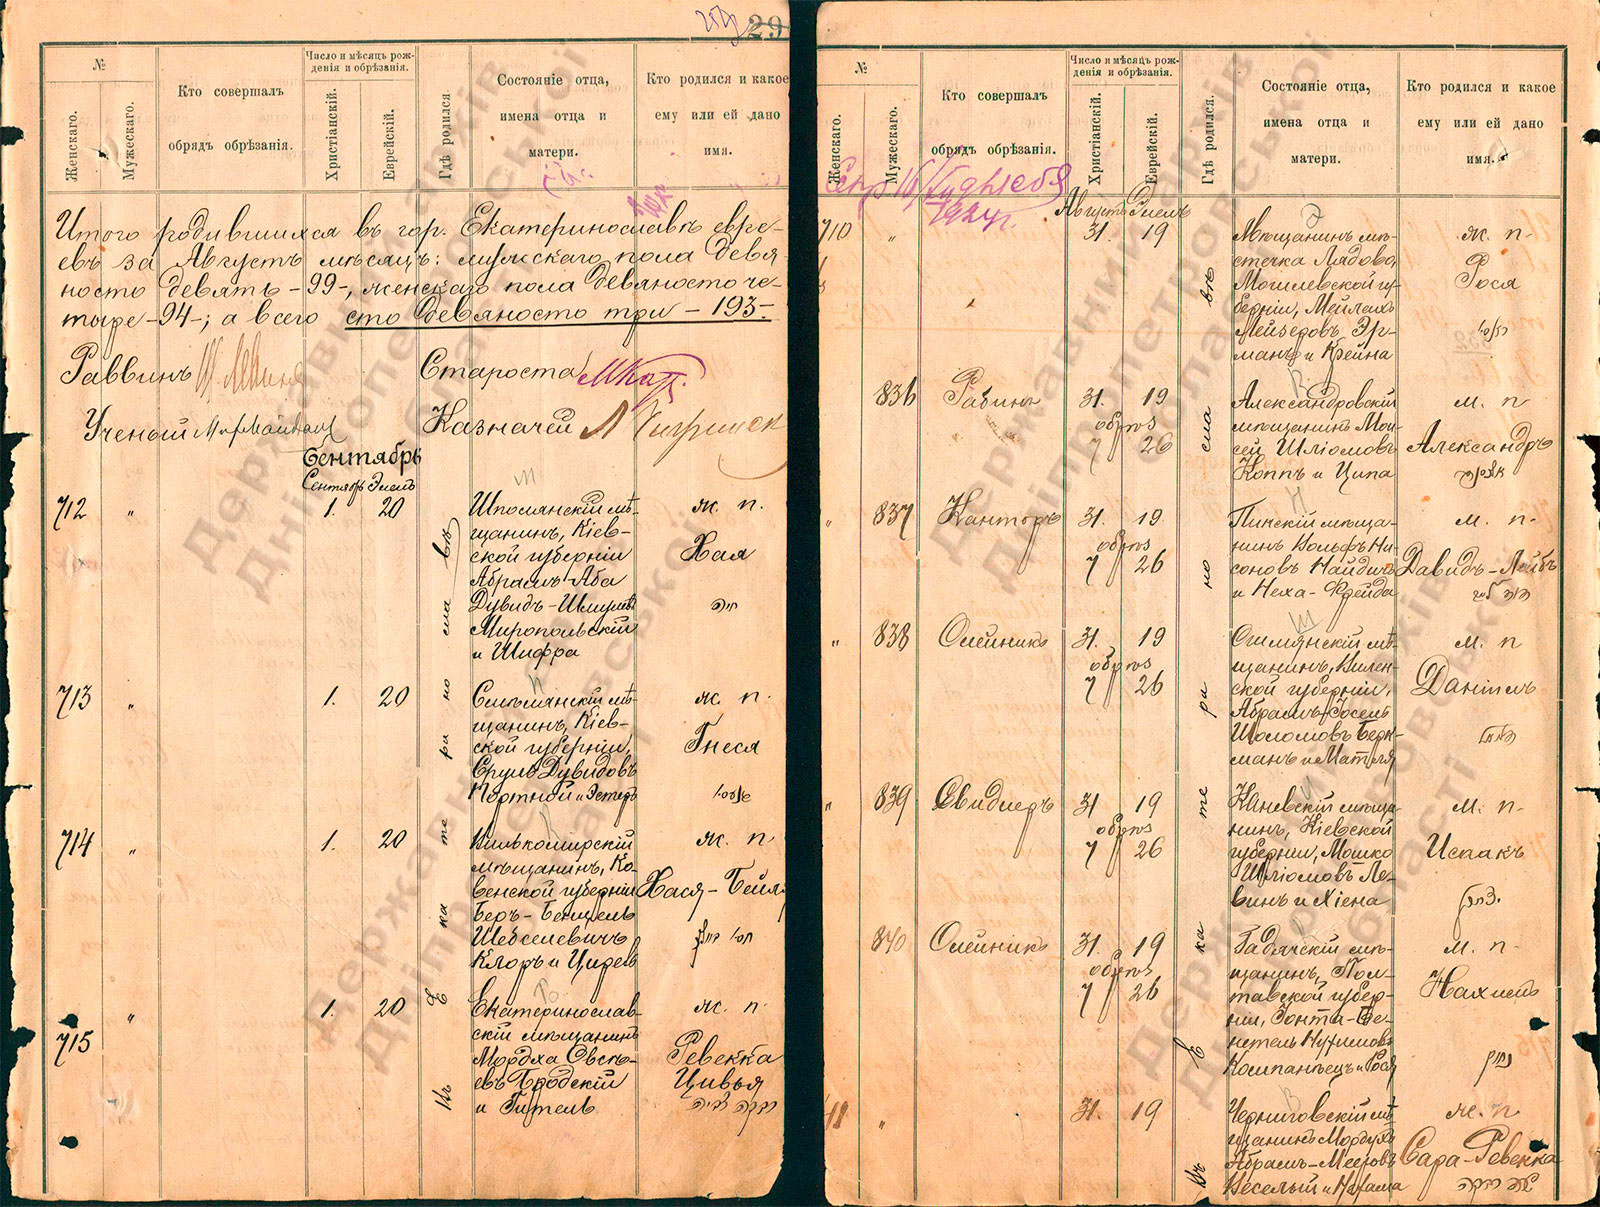 29
№
Женскаго.
Мужескаго.
Кто совершалъ
обрядъ обрѣзанія.
Число и мѣсяцъ рож-
денія и обрѣзанія.
Христіанскій.
Еврейскій.
Гдѣ родился
Состояніе отца,
имена отца и
матери.
Кто родился и какое
ему или ей дано
имя.
Итого родившихся въ гор. Екатеринославѣ евре-
евъ за Августъ мѣсяцъ: мужскаго пола девя-
носто девять - 99 -, женскаго пола девяносто че-
тыре - 94 -; а всего сто девяносто три - 193 -
Раввинъ
Староста
Ученый
Казначей
Сентябрь
Сентябрь Элелъ
712 " 1. 20
Шполянскій мѣ-
щанинъ, Кіев-
ской губерніи
Абрамъ-Аба
Дувидъ-Шмулевъ
Миропольскій
и Шифра
ж. п.
Хая
חיה
713 " 1. 20
Смѣлянскій мѣ-
щанинъ, Кіев-
ской губерніи,
Сруль Дувидовъ
Портной и Эстеръ
ж. п.
Гнеся
714 " 1. 20
Вилькомирскій
мѣщанинъ, Ко-
венской губерніи
Беръ-Бенцель
Шебселевичъ
Кляръ и
ж. п.
Хася-Бейля
715 " 1. 20
Екатеринослав-
скій мѣщанинъ
Мордха Овсѣ-
евъ Бродскій
и Гитель
ж. п.
Ревекка
Цивья
רבקה צביה
Въ Екатеринославѣ
№
Женскаго.
Мужескаго.
Кто совершалъ
обрядъ обрѣзанія.
Число и мѣсяцъ рож-
денія и обрѣзанія.
Христіанскій.
Еврейскій.
Гдѣ родился.
Состояніе отца,
имена отца и
матери.
Кто родился и какое
ему или ей дано
имя.
1924г.
Августъ Элелъ
710 " 31. 19
Мѣщанинъ мѣ-
стечка Лядово,
Могилевской гу-
берніи, Мейлахъ
Мейеровъ Эр-
манъ и Крейна
ж. п.
Рося
836 Рабинъ 31. 19
обрѣз
7 26
Александровскій
мѣщанинъ Мои-
сей Шліомовъ
Коппъ и Ципа
м. п
Александръ
" 837 Канторъ 31. 19
обрѣз
7 26
Пинскій мѣща-
нинъ Вольфъ Ни-
соновъ Найдичъ
и Неха-Фрейда
м. п.
Давидъ-Лейбъ
" 838 Олейникъ 31. 19
обрѣз
7 26
мѣ-
щанинъ, Вилен-
ской губерніи,
Абрамъ-Іосель
Шоломовъ Берк-
манъ и Матля
м. п
Даніилъ
" 839 Свидлеръ 31 19
обрѣз
7 26
Каневскій мѣща-
нинъ, Кіевской
губерніи, Мошко
Шліомовъ Ле-
винъ и Хіена
м. п.
Исаакъ
840 Олейникъ 31. 19
обрѣз
7 26
Гадячскій мѣ-
щанинъ, Пол-
тавской губер-
ніи,
Компанѣецъ и Рося
м. п.
711 " 31. 19
Черниговскій мѣ-
щанинъ Мордухъ
Абрамъ-Мееровъ
Веселый и Нехама
ж. п
Сара-Ревекка
שרה רבקה
Въ Екатеринославѣ
Державний архів
Дніпропетровської
області